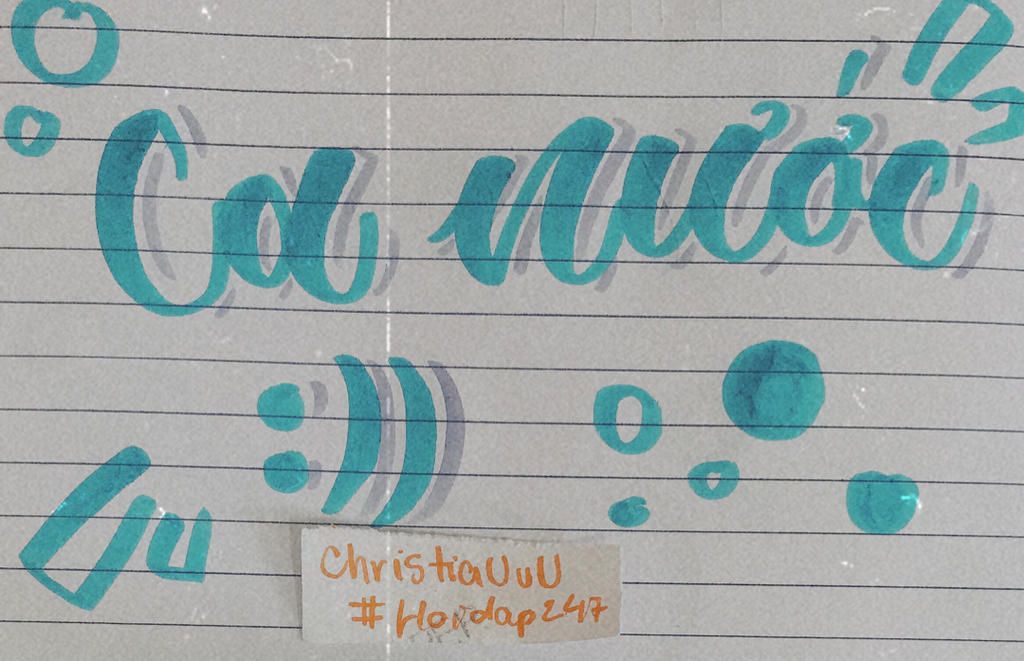 Ca nước
:))
ChristiaUuU
#Hoidap247